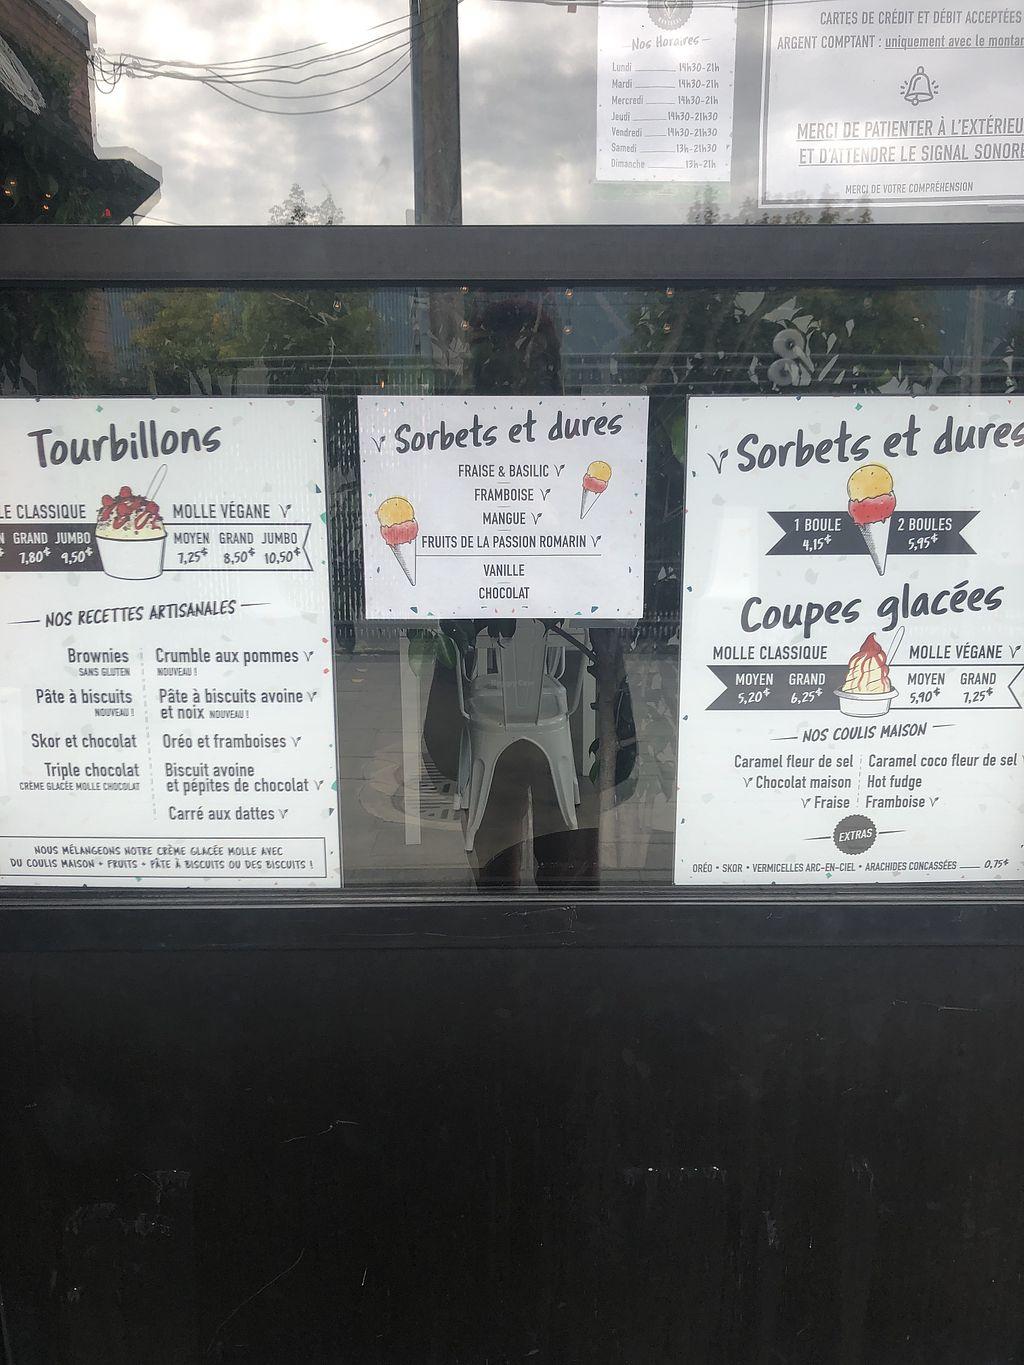 Nos Horaires
Lundi 14h30-21h
Mardi 14h30-21h
Mercredi 14h30-21h
Jeudi 14h30-21h30
Vendredi 14h30-21h30
Samedi 13h-21h30
Dimanche 13h-21h
CARTES DE CRÉDIT ET DÉBIT ACCEPTÉES
ARGENT COMPTANT : uniquement avec le montan
MERCI DE PATIENTER À L'EXTÉRIEU
ET D'ATTENDRE LE SIGNAL SONORE
MERCI DE VOTRE COMPRÉHENSION
Tourbillons
LE CLASSIQUE
N GRAND JUMBO
7,80¢ 9,50¢
MOLLE VÉGANE V
MOYEN GRAND JUMBO
7,25¢ 8,50¢ 10,50¢
NOS RECETTES ARTISANALES
Brownies
SANS GLUTEN
Pâte à biscuits
NOUVEAU !
Skor et chocolat
Triple chocolat
CRÈME GLACÉE MOLLE CHOCOLAT
Crumble aux pommes V
NOUVEAU !
Pâte à biscuits avoine V
et noix NOUVEAU !
Oréo et framboises V
Biscuit avoine
et pépites de chocolat V
Carré aux dattes V
NOUS MÉLANGEONS NOTRE CRÈME GLACÉE MOLLE AVEC
DU COULIS MAISON + FRUITS + PÂTE À BISCUITS OU DES BISCUITS !
V Sorbets et dures
FRAISE & BASILIC V
FRAMBOISE V
MANGUE V
FRUITS DE LA PASSION ROMARIN V
VANILLE
CHOCOLAT
V Sorbets et dures
1 BOULE
4,15¢
2 BOULES
5,95¢
Coupes glacées
MOLLE CLASSIQUE
MOYEN GRAND
5,20¢ 6,25¢
MOLLE VÉGANE V
MOYEN GRAND
5,90¢ 7,25¢
NOS COULIS MAISON
Caramel fleur de sel
V Chocolat maison
V Fraise
Caramel coco fleur de sel V
Hot fudge
Framboise V
EXTRAS
ORÉO • SKOR • VERMICELLES ARC-EN-CIEL • ARACHIDES CONCASSÉES 0,75¢